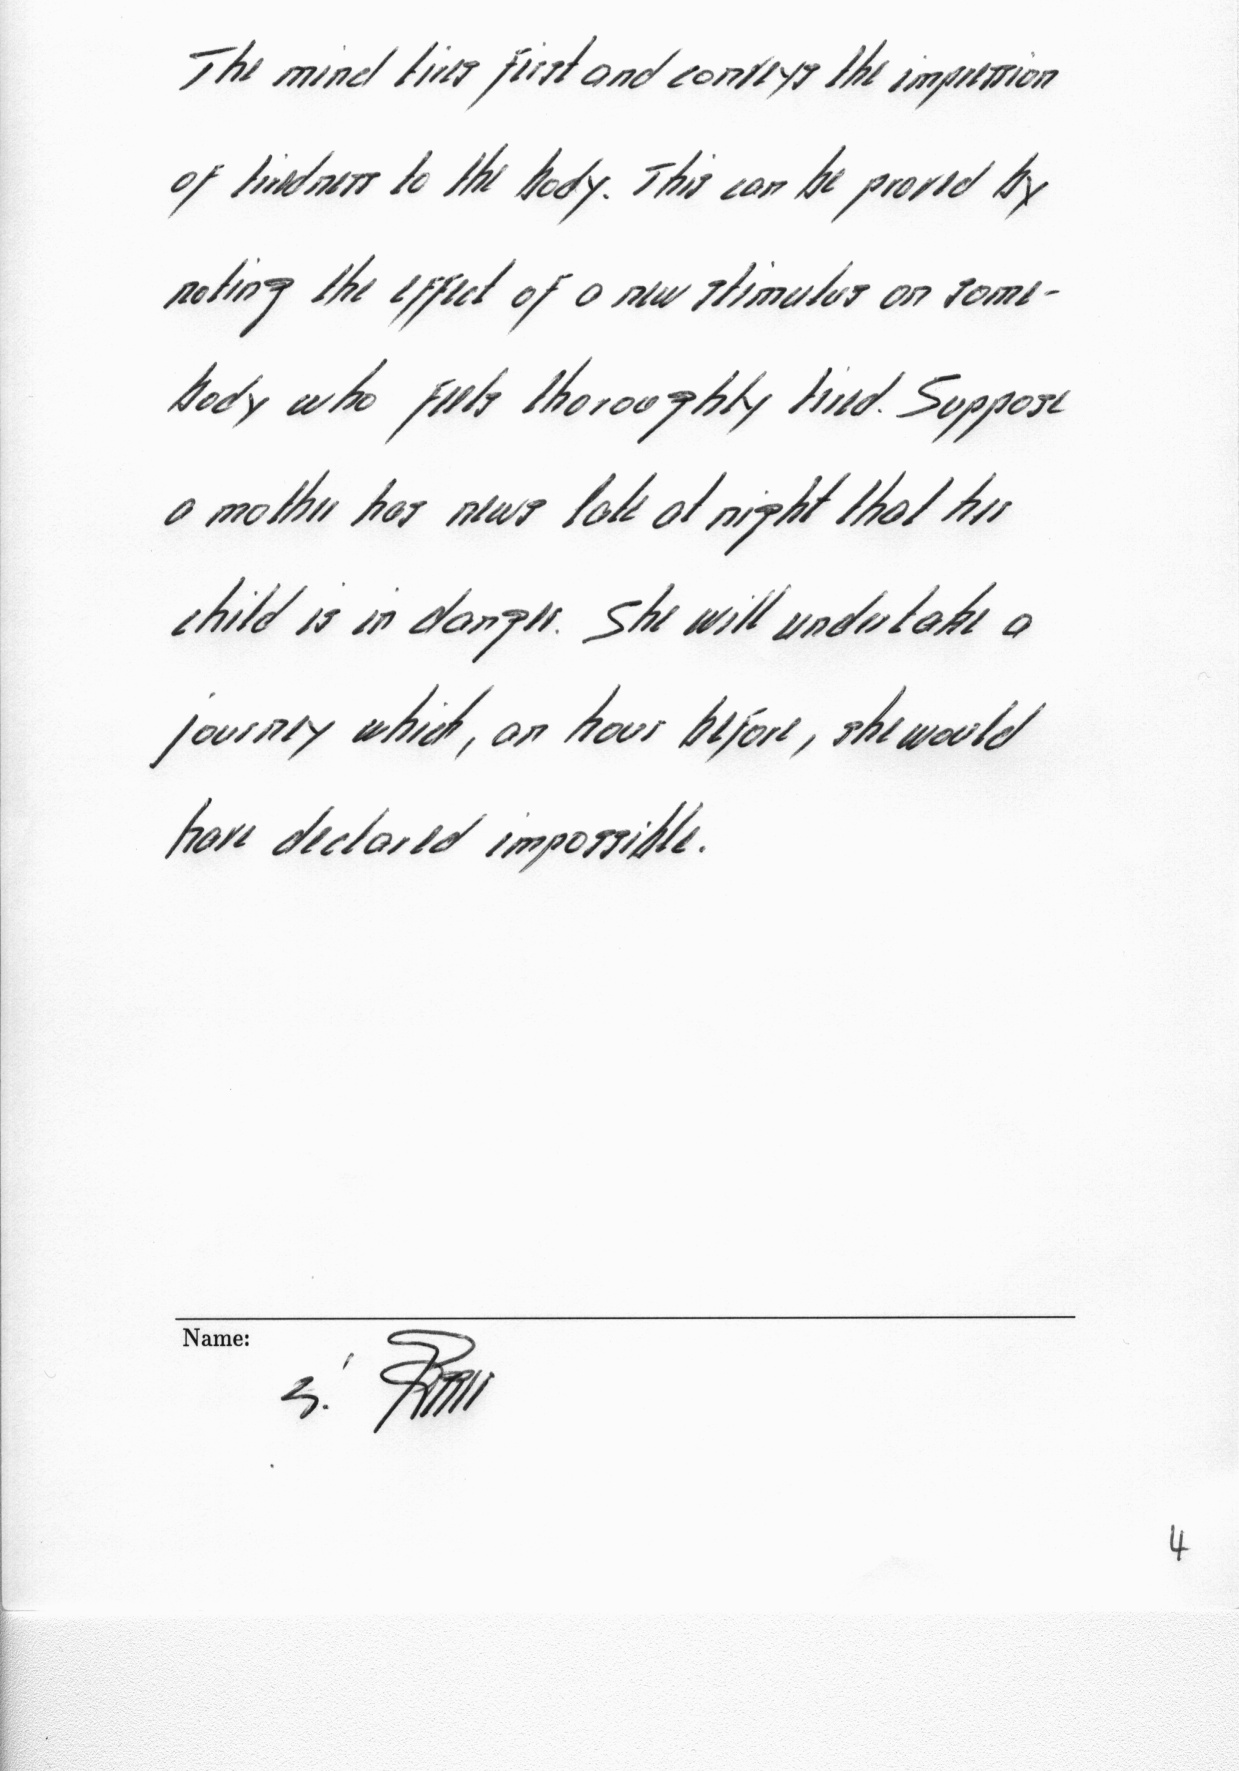 The mind tires first and conveys the impression
of tiredness to the body. This can be proved by
noting the effect of a new stimulus on some-
body who feels thoroughly tired. Suppose
a mother has news late at night that her
child is in danger. She will undertake a
journey which, an hour before, she would
have declared impossible.
Name:
4